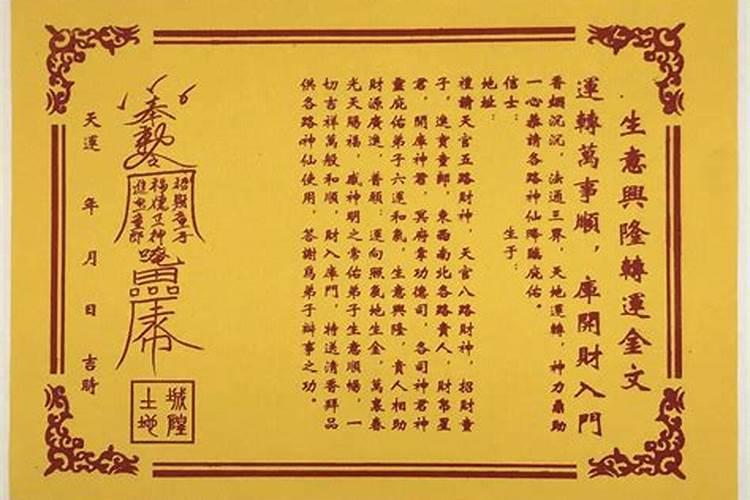 生意興隆轉運金文
運轉萬事順，庫開財入門
香煙沉沉，法通三界，天地運轉，神力鼎助
一心恭請各路神仙降臨庇佑。
信士：　　　　生于：
地址：
禮請天官五路財神，天官八路財神，招財童
子，進寶童郎，東西南北各路貴人，財帛星
君，開庫神君，冥府掌功德司，各司神君神
靈庇佑弟子六運和氣，生意興隆，貴人相助
財源廣進，普願：運向照氣地生金，萬裏春
光天賜福，感神明之常佑弟子生意順暢，一
切吉祥萬般和順，財入庫門，特送清香拜品
供各路神仙使用，答謝爲弟子辦事之功。
奉勅令
招財童子
福德正神
進寶童郎
城隍
土地
天運　年　月　日　吉時